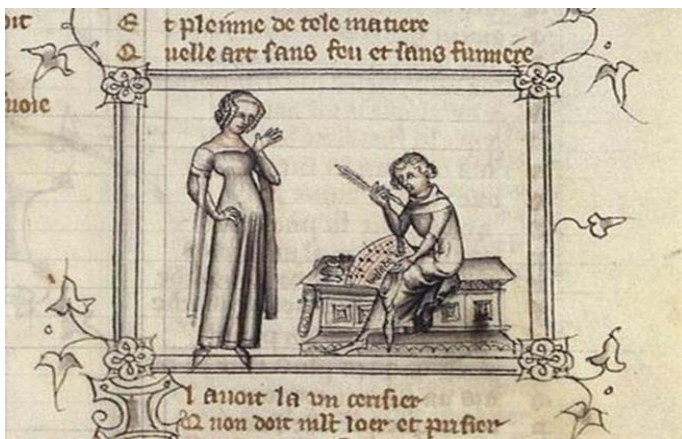 oit
Et plenne de tele matiere
Quelle art sans feu et sans fumiere
uoie
l auoit la vn cerisier
Q non doit mlt loer et prisier